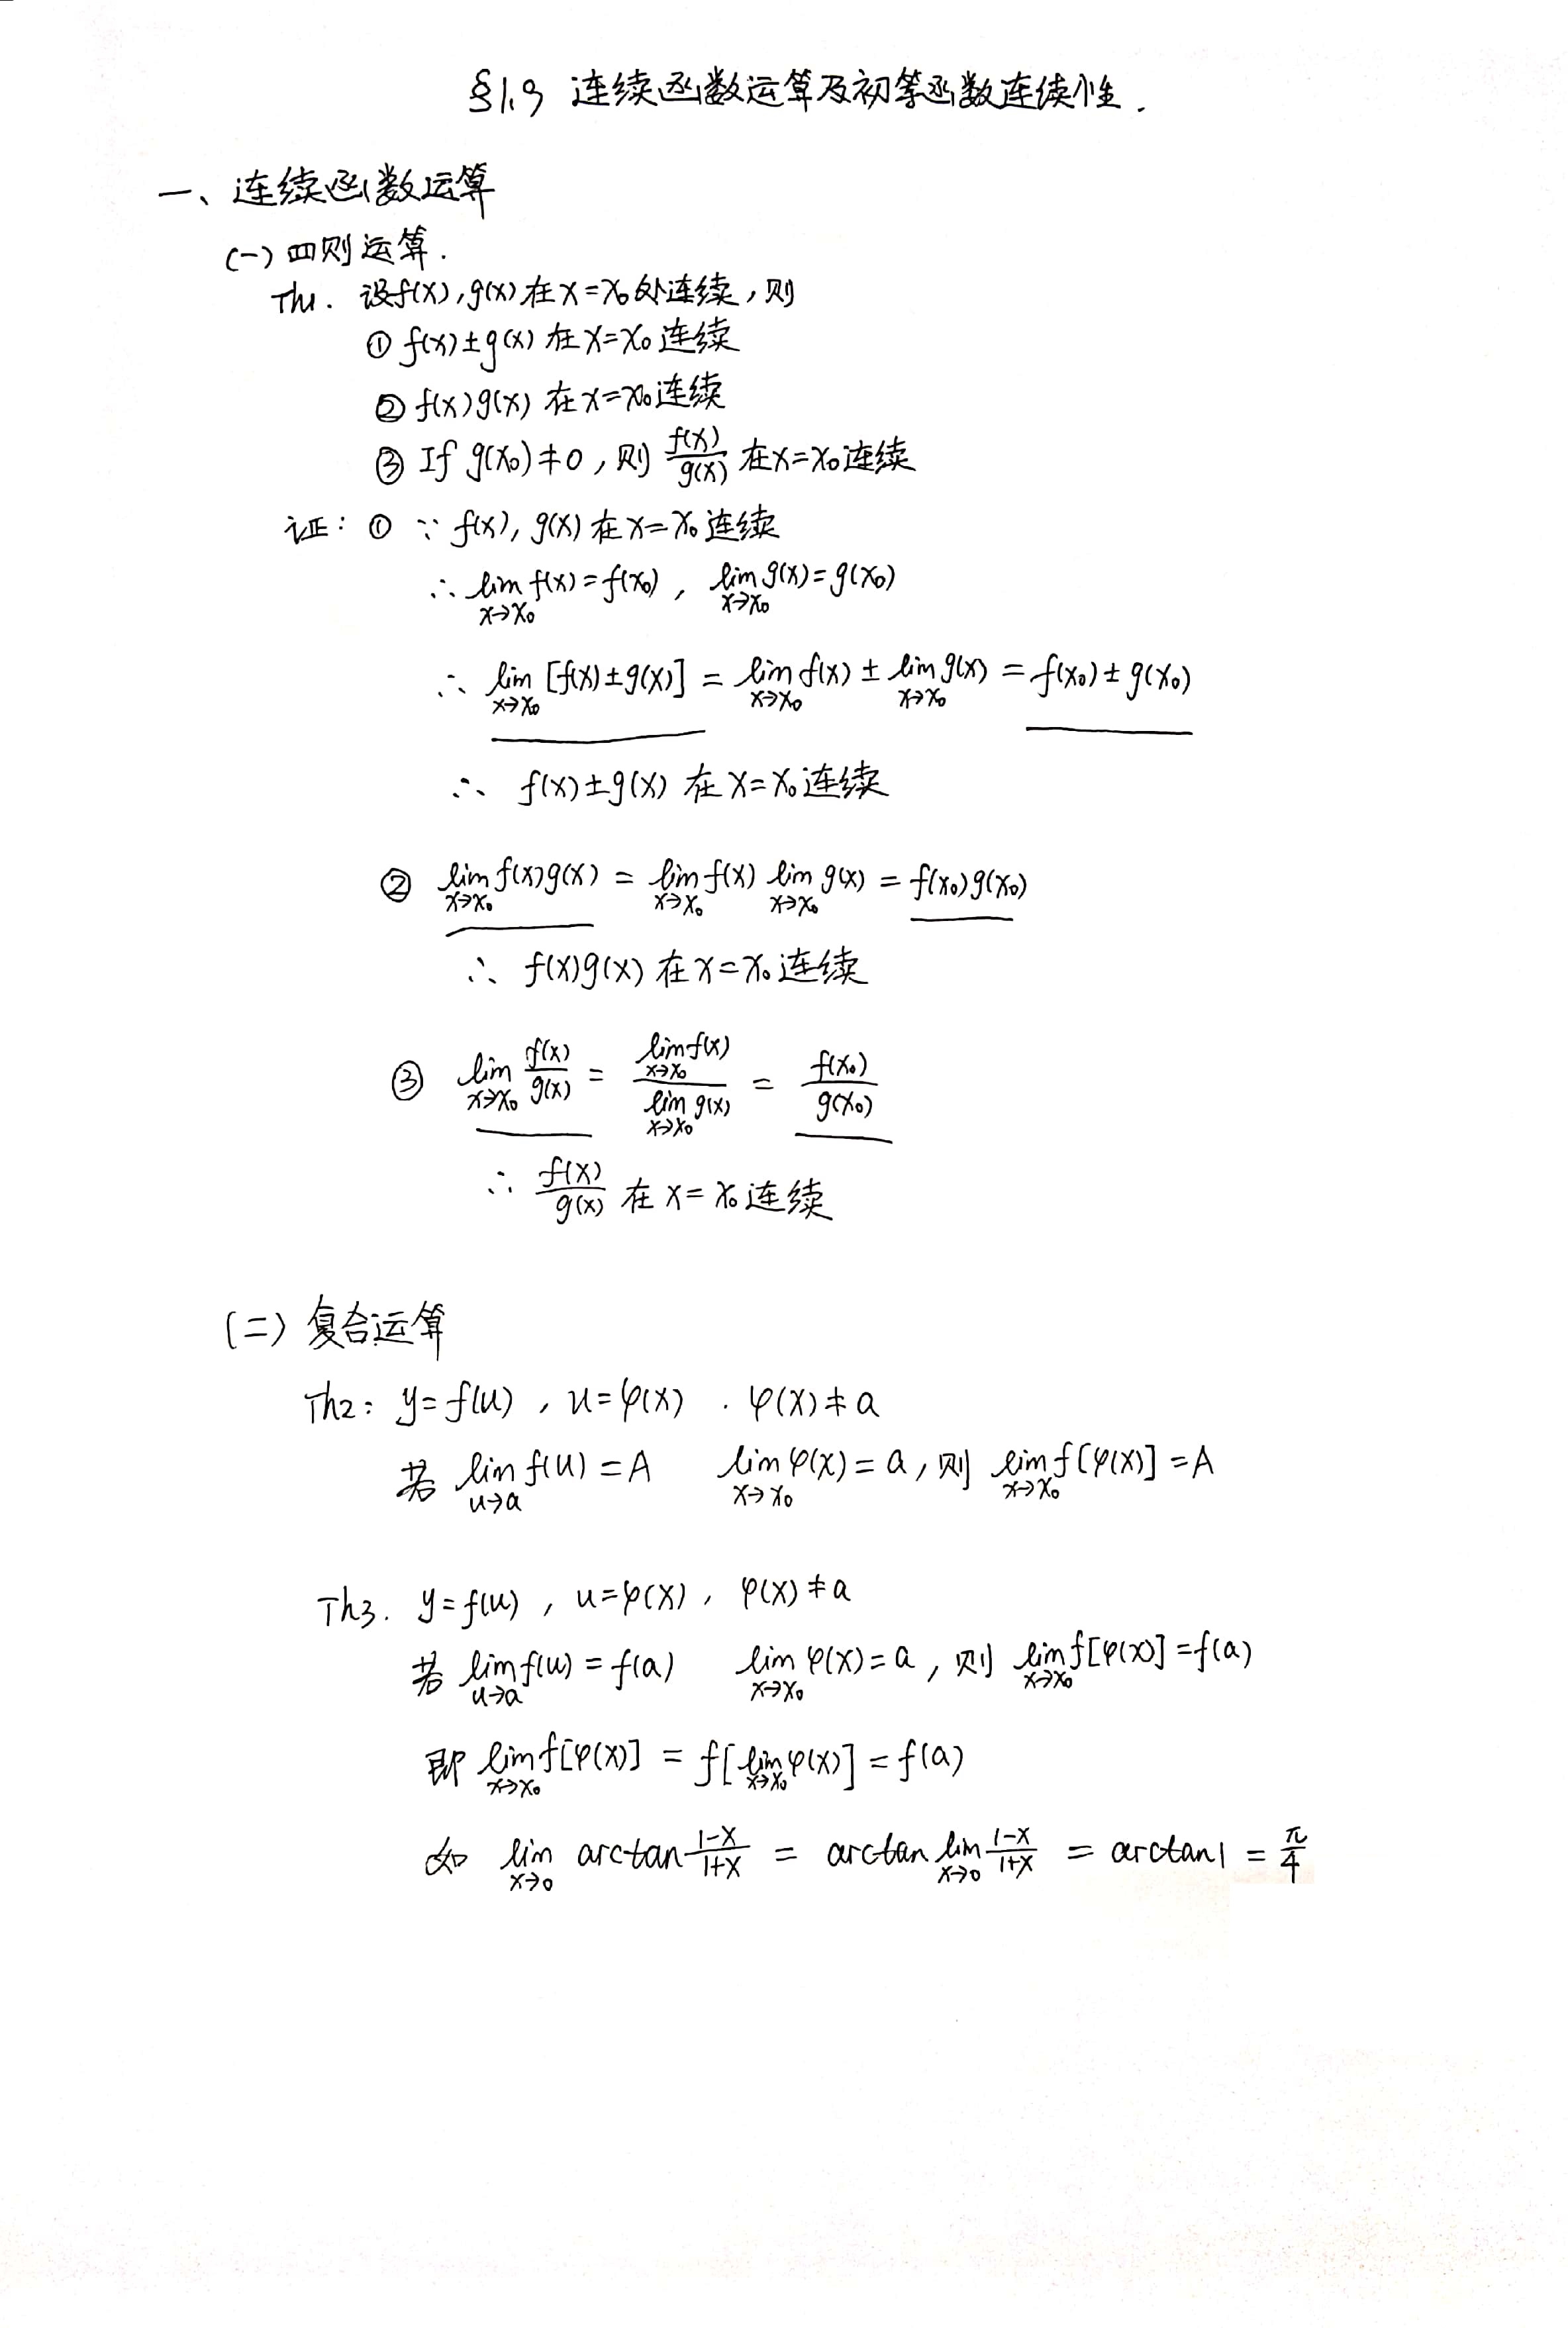 §1.9 连续函数运算及初等函数连续性.
一、连续函数运算
(一) 四则运算.
Th1. 设f(x), g(x) 在 x=x₀ 处连续, 则
① f(x)±g(x) 在 x=x₀ 连续
② f(x)g(x) 在 x=x₀ 连续
③ If g(x₀)≠0, 则 f(x)/g(x) 在 x=x₀ 连续
证: ① ∵ f(x), g(x) 在 x=x₀ 连续
∴ lim_{x→x₀} f(x) = f(x₀), lim_{x→x₀} g(x) = g(x₀)
∴ lim_{x→x₀} [f(x)±g(x)] = lim_{x→x₀} f(x) ± lim_{x→x₀} g(x) = f(x₀)±g(x₀)
∴ f(x)±g(x) 在 x=x₀ 连续
② lim_{x→x₀} f(x)g(x) = lim_{x→x₀} f(x) lim_{x→x₀} g(x) = f(x₀)g(x₀)
∴ f(x)g(x) 在 x=x₀ 连续
③ lim_{x→x₀} f(x)/g(x) = lim_{x→x₀} f(x) / lim_{x→x₀} g(x) = f(x₀)/g(x₀)
∴ f(x)/g(x) 在 x=x₀ 连续
(二) 复合运算
Th2: y=f(u), u=φ(x). φ(x)≠a
若 lim_{u→a} f(u) = A lim_{x→x₀} φ(x) = a, 则 lim_{x→x₀} f[φ(x)] = A
Th3. y=f(u), u=φ(x), φ(x)≠a
若 lim_{u→a} f(u) = f(a) lim_{x→x₀} φ(x) = a, 则 lim_{x→x₀} f[φ(x)] = f(a)
即 lim_{x→x₀} f[φ(x)] = f[lim_{x→x₀} φ(x)] = f(a)
如 lim_{x→0} arctan (1-x)/(1+x) = arctan lim_{x→0} (1-x)/(1+x) = arctan1 = π/4